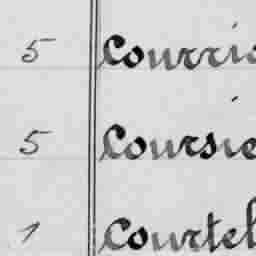 5 Courrio
5 Coursie
1 Courtel